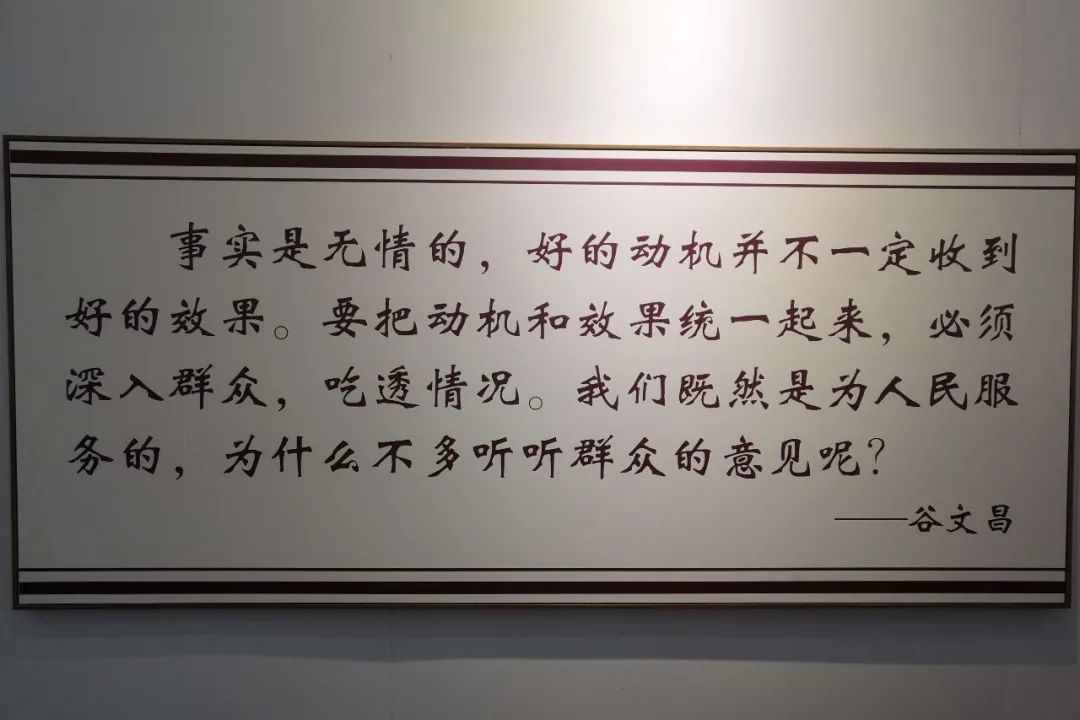 事实是无情的，好的动机并不一定收到
好的效果。要把动机和效果统一起来，必须
深入群众，吃透情况。我们既然是为人民服
务的，为什么不多听听群众的意见呢？
——谷文昌